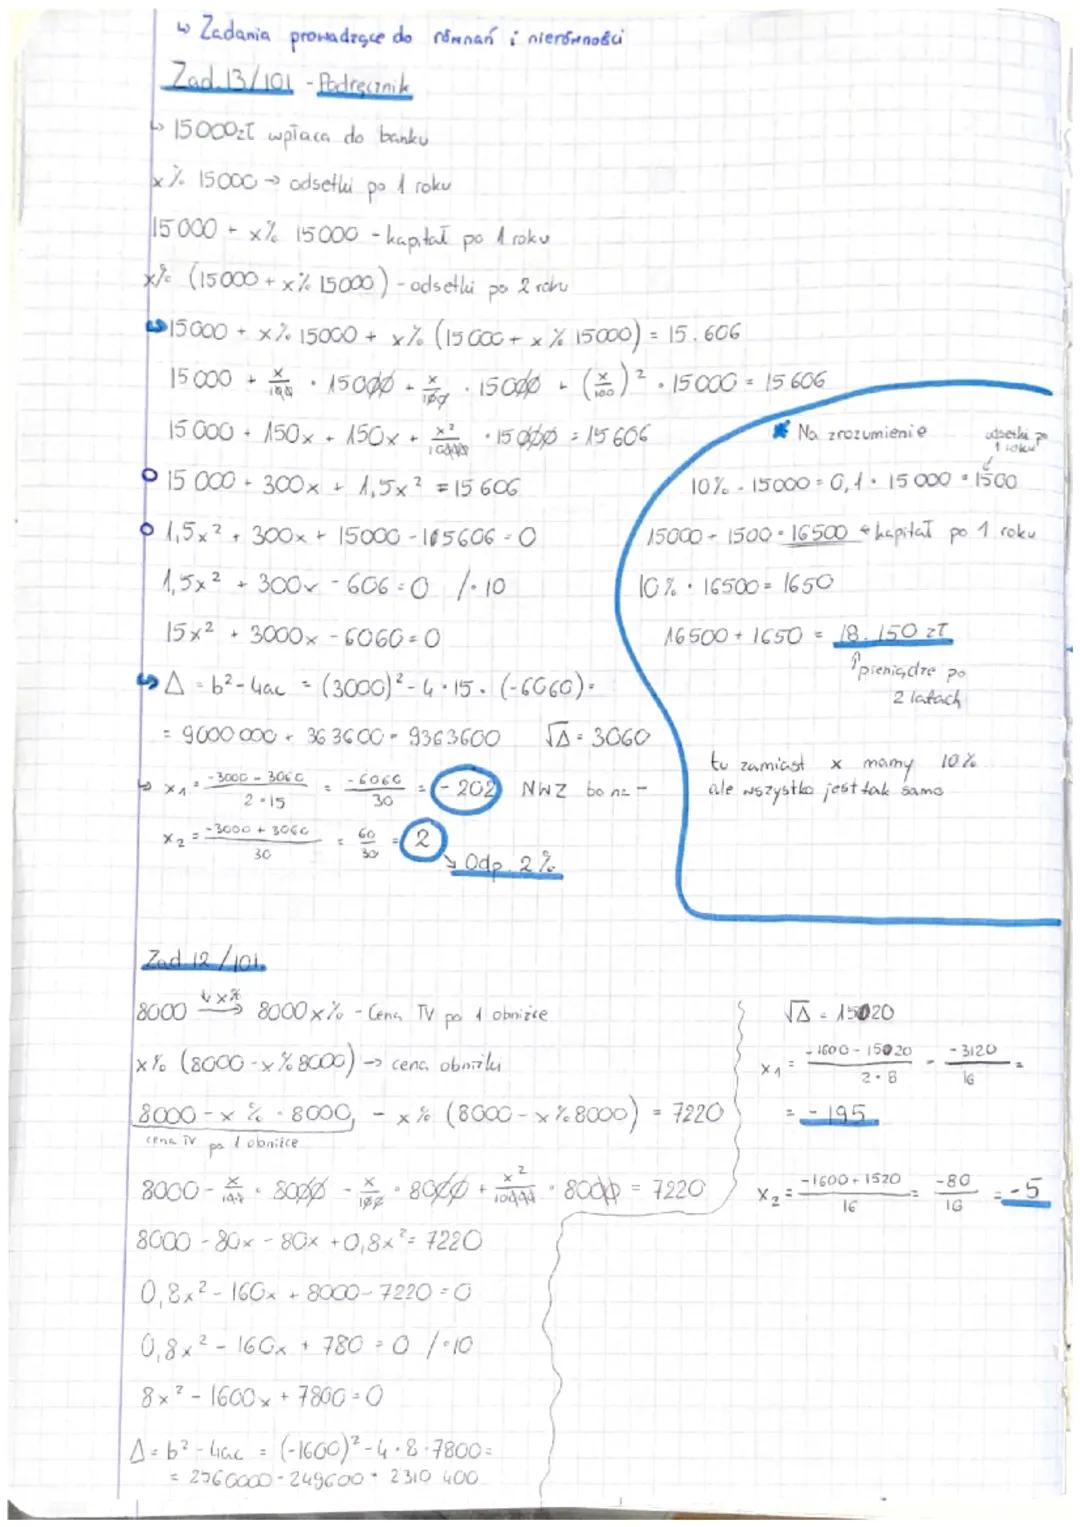 ↳ Zadania prowadzące do równań i nierówności
Zad. 13/101 - Podręcznik
↳ 15000zł wpłaca do banku
x% 15000 → odsetki po 1 roku
15000 + x% 15000 - kapitał po 1 roku
x% (15000 + x% 15000) - odsetki po 2 roku
↳ 15000 + x% 15000 + x% (15000 + x% 15000) = 15.606
15000 + x/100 · 15000 + x/100 · 15000 + (x/100)² · 15000 = 15606
15000 + 150x + 150x + x²/10000 · 15000 = 15606
15 000 + 300x + 1,5x² = 15606
1,5x² + 300x + 15000 - 15606 = 0
1,5x² + 300x - 606 = 0 /·10
15x² + 3000x - 6060 = 0
↳ Δ = b²-4ac = (3000)² - 4 · 15 · (-6060) =
= 9000 000 + 363600 = 9363600 √Δ = 3060
↳ x₁ = -3000 - 3060 / 2·15 = -6060/30 = -202 NWZ bo na -
x₂ = -3000 + 3060 / 30 = 60/30 = 2
↳ Odp. 2%
* Na zrozumienie
odsetki po 1 roku
10% · 15000 = 0,1 · 15 000 = 1500
15000 + 1500 = 16500 ← kapitał po 1 roku
10% · 16500 = 1650
16500 + 1650 = 18.150 zł
↑ pieniądze po
2 latach
tu zamiast x mamy 10%
ale wszystko jest tak samo
Zad. 12/101.
8000 ↓x% → 8000x% - Cena TV po 1 obniżce
x% (8000 - x% 8000) → cena obniżki
8000 - x% · 8000 - x% (8000 - x% 8000) = 7220
cena TV po 1 obniżce
8000 - x/100 · 8000 - x/100 · 8000 + x²/10000 · 8000 = 7220
8000 - 80x - 80x + 0,8x² = 7220
0,8x² - 160x + 8000 - 7220 = 0
0,8x² - 160x + 780 = 0 /·10
8x² - 1600x + 7800 = 0
Δ = b² - 4ac = (-1600)² - 4 · 8 · 7800 =
= 2560000 - 249600 = 2310 400
√Δ = 15020
x₁ = -1600 - 15020 / 2·8 = -3120/16 =
= -195
x₂ = -1600 + 1520 / 16 = -80/16 = -5